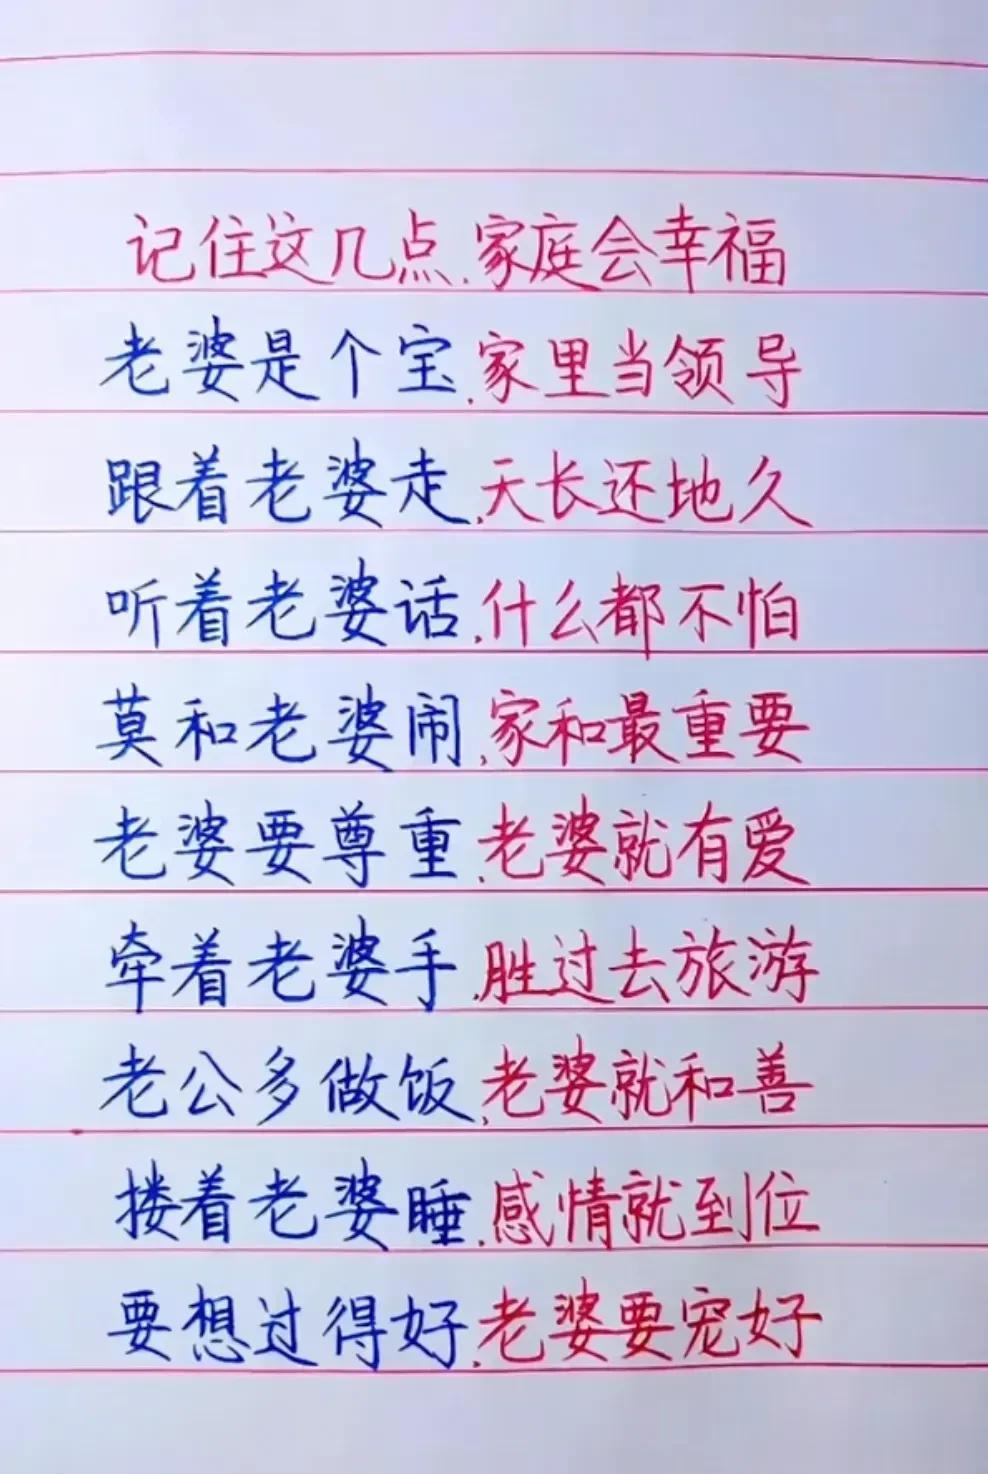 记住这几点.家庭会幸福
老婆是个宝.家里当领导
跟着老婆走.天长还地久
听着老婆话.什么都不怕
莫和老婆闹.家和最重要
老婆要尊重.老婆就有爱
牵着老婆手.胜过去旅游
老公多做饭.老婆就和善
搂着老婆睡.感情就到位
要想过得好.老婆要宠好